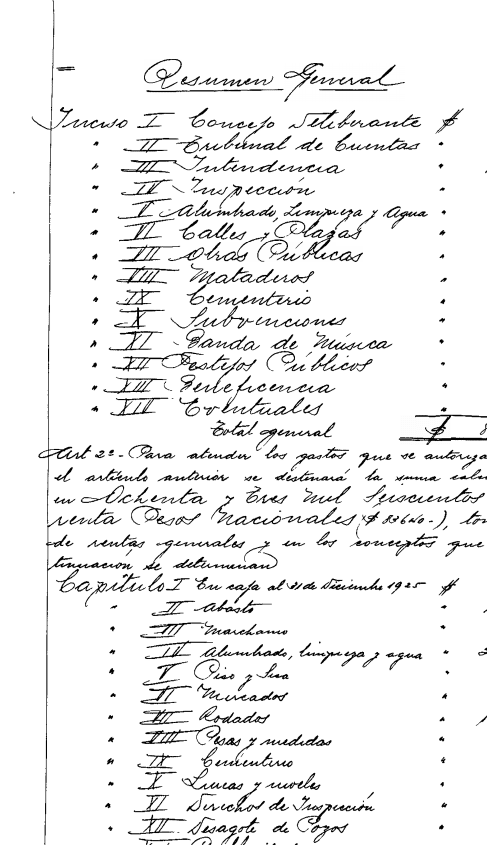 Resumen General
Inciso I Concejo Deliberante $
" II Tribunal de Cuentas "
" III Intendencia "
" IV Inspección "
" V Alumbrado, Limpieza y Agua "
" VI Calles y Plazas "
" VII Obras Públicas "
" VIII Mataderos "
" IX Cementerio "
" X Subvenciones "
" XI Banda de Música "
" XII Festejos Públicos "
" XIII Beneficencia "
" XIV Eventuales "
Total general $ 8
Art 2º - Para atender los gastos que se autoriza
el artículo anterior se destinará la suma
en Ochenta y Tres Mil Seiscientos
renta Pesos Nacionales ($ 83640.-), to
de rentas generales y en los conceptos que
tinuación se determinan
Capítulo I En caja al 31 de Diciembre 1925 $
" II Abasto "
" III Marchamo "
" IV Alumbrado, limpieza y agua "
" V Piso y Sisa "
" VI Mercados "
" VII Rodados "
" VIII Pesas y medidas "
" IX Cementerio "
" X Lineas y niveles "
" XI Derechos de Inspección "
" XII Desagote de Pozos "